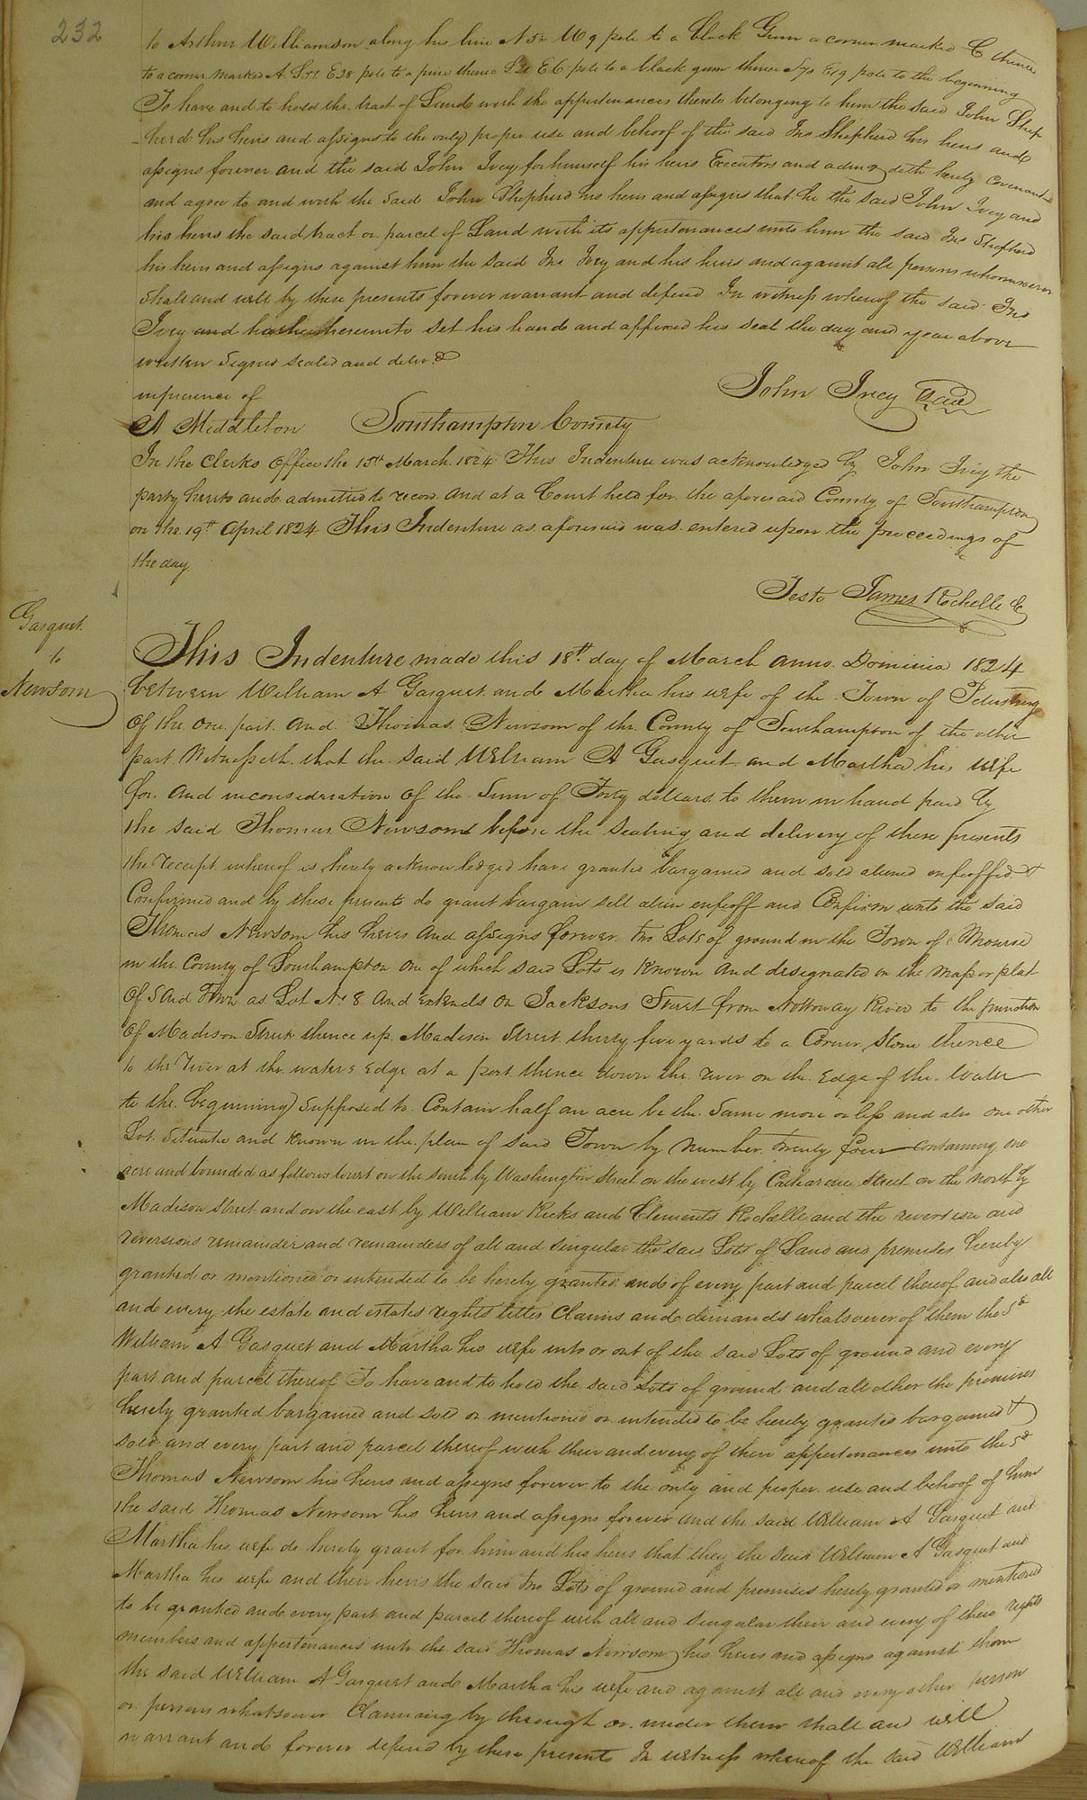 232
to Arthur Williamson along his line N 52 W 9 pole to a black Gum a corner marked C thence
to a corner marked A E 38 pole to a pine thence E 6 pole to a black gum thence pole to the beginning
To have and to hold the tract of Lande with the appertenances thereto belonging to him the said John Shep
-herd his heirs and assigns to the only proper use and behoof of the said Jno Shepherd his heirs and
assigns forever and the said John Ivey for himself his heirs Executors and admrs doth hereby Covenant
and agree to and with the said John Shepherd his heirs and assigns that he the said John Ivey and
his heirs the said tract or parcel of Land with its appertenances unto him the said Jno Shepherd
his heirs and assigns against him the said Jno Ivey and his heirs and against all persons whomsoever
Shall and will by these presents forever warrant and defend In witness whereof the said Jno
Ivey and hath hereunto set his hande and affixed his seal the day and year above
written Signed sealed and delivd
in presence of
John Ivey Seal
A Middleton Southampton County
In the Clerks Office the 15th March 1824 This Indenture was acknowledged by John Ivey the
party hereto and admitted to record and at a Court held for the aforesaid County of Southampton
on the 19th April 1824 This Indenture as aforesaid was entered upon the proceedings of
the day
Teste James Rochelle Ck
Gasquet
to
Newsom
This Indenture made this 18th day of March anno Dominia 1824
between William A Gasquet and Martha his wife of the Town of
Of the one part and Thomas Newsom of the County of Southampton of the other
part Witnesseth that the said William A Gasquet and Martha his wife
for and in consideration of the Sum of Forty dollars to them in hand paid by
the said Thomas Newsom before the sealing and delivery of these presents
the receipt whereof is hereby acknowledged have granted bargained and sold aliened enfeoffed &
Confirmed and by these presents do grant bargain sell alien enfeoff and Confirm unto the said
Thomas Newsom his heirs and assigns forever two Lots of ground in the Town of Monroe
in the County of Southampton one of which said Lots is Known and designated in the map or plat
Of said Town as Lot No 8 and extends on Jacksons Street from Nottoway River to the junction
Of Madison Street thence up Madison Street thirty five yards to a Corner Stone thence
to the River at the waters edge at a port thence down the river on the Edge of the Water
to the beginning Supposed to Contain half an acre be the same more or less and also one other
Lot Situate and Known in the plan of said Town by Number twenty four containing one
acre and bounded as follows on the south by Washington Street on the west by Catharine Street on the north by
Madison Street and on the east by William Ricks and Clements Rochelle and the reversion and
reversions remainder and remainders of all and singular the said Lots of Land and premises hereby
granted or mentioned or intended to be hereby granted and of every part and parcel thereof and also all
and every the estate and estates rights titles Claims and demands whatsoever of them the sd
William A Gasquet and Martha his wife into or out of the said Lots of ground and every
part and parcel thereof To have and to hold the said Lots of ground and all other the premises
hereby granted bargained and sold or mentioned or intended to be hereby granted bargained &
sold and every part and parcel thereof with their and every of their appertenances unto the sd
Thomas Newsom his heirs and assigns forever to the only and proper use and behoof of him
the said Thomas Newsom his heirs and assigns forever and the said William A Gasquet and
Martha his wife do hereby grant for him and his heirs that they the said William A Gasquet and
Martha his wife and their heirs the said two Lots of ground and premises hereby granted or mentioned
to be granted and every part and parcel thereof with all and singular their and every of their rights
members and appertenances unto the said Thomas Newsom his heirs and assigns against them
the said William A Gasquet and Martha his wife and against all and every other person
or persons whatsoever Claiming by through or under them shall and will
warrant and forever defend by these presents In witness whereof the said William